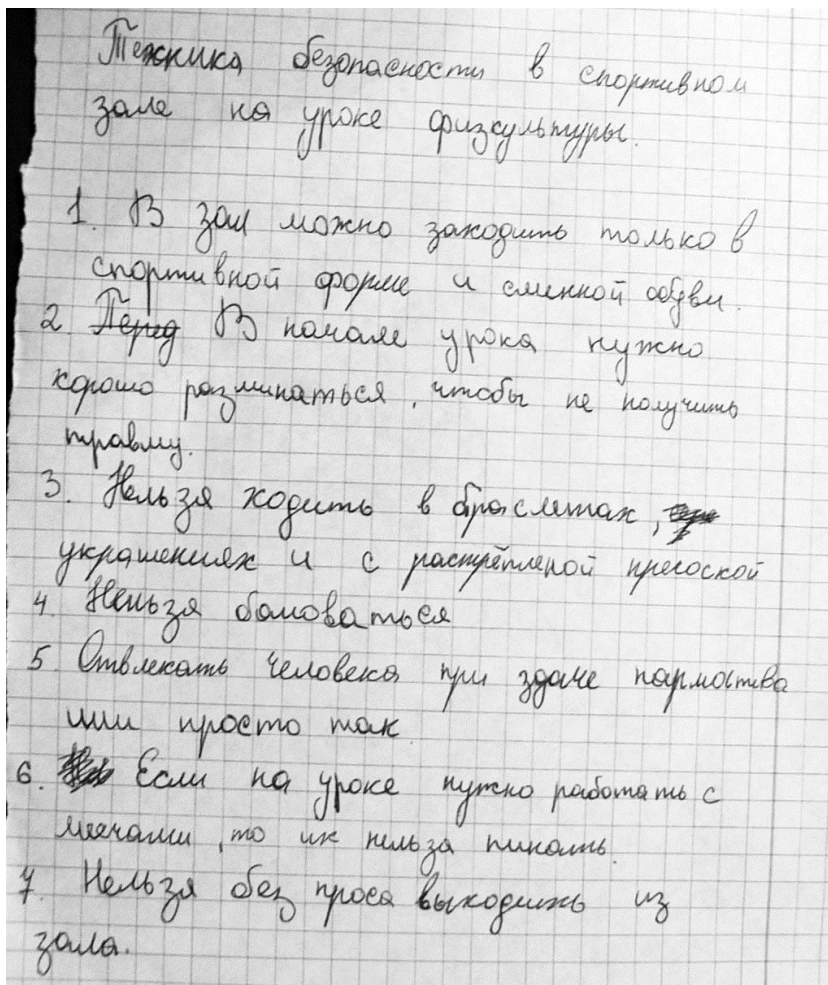 Техника безопасности в спортивном
зале на уроке физкультуры.
1. В зал можно заходить только в
спортивной форме и сменной обуви.
2. Перед В начале урока нужно
хорошо разминаться, чтобы не получить
травму.
3. Нельзя ходить в браслетах,
украшениях и с растрёпленой прегоской
4. Нельзя баловаться
5. Отвлекать человека при здаче нармотива
или просто так
6. Если на уроке нужно работать с
мячами, то их нельза пинать.
7. Нельзя без проса выходить из
зала.